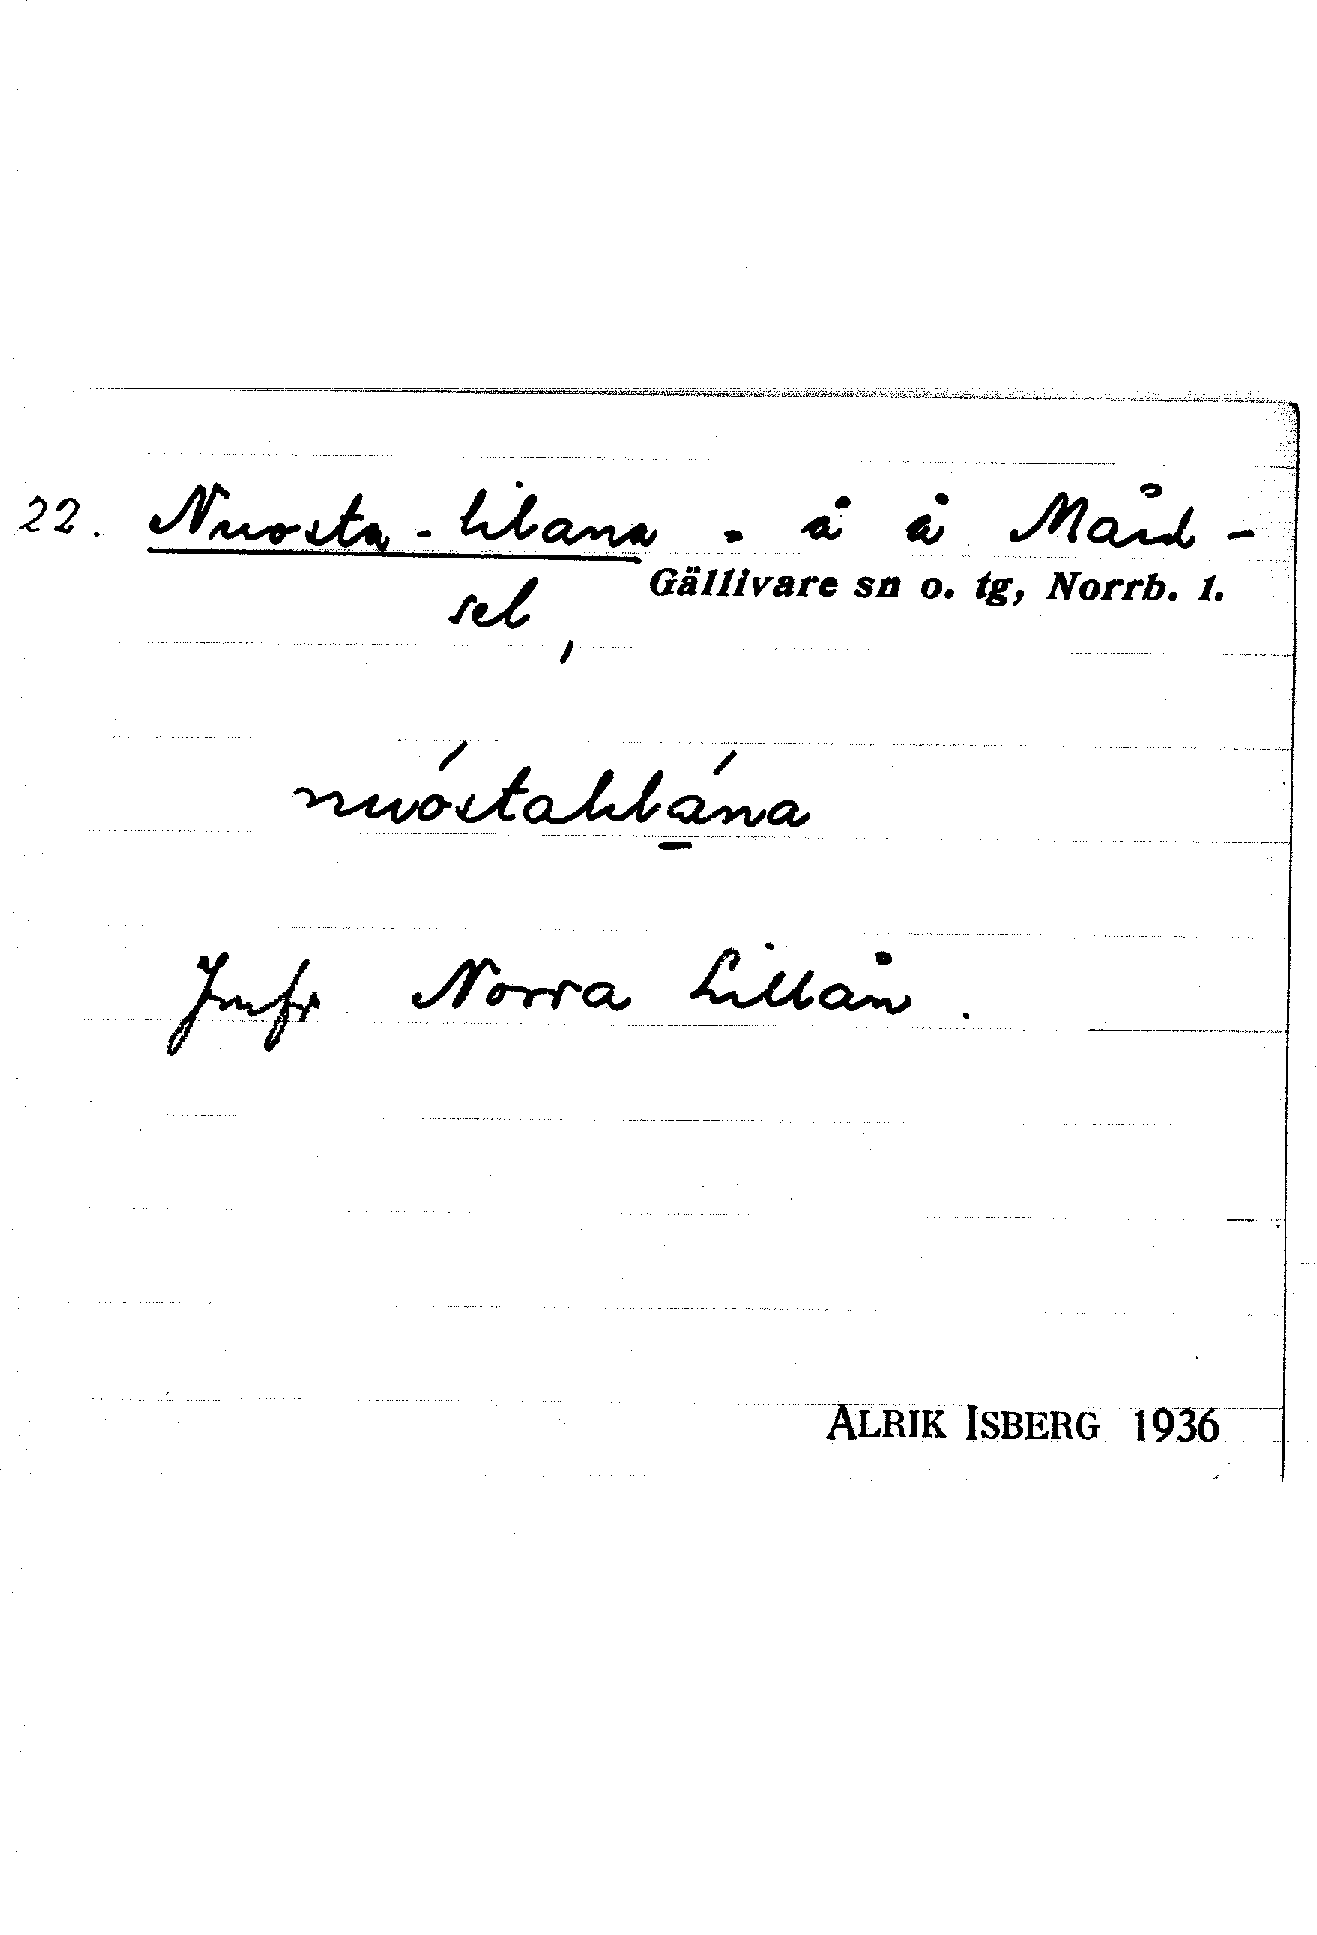 22. Nuosta-lilana. å å Mård-
Gällivare sn o. tg, Norrb. l.
sel,
nuóstalilána
Jmfr Norra Lillån.
ALRIK ISBERG 1936